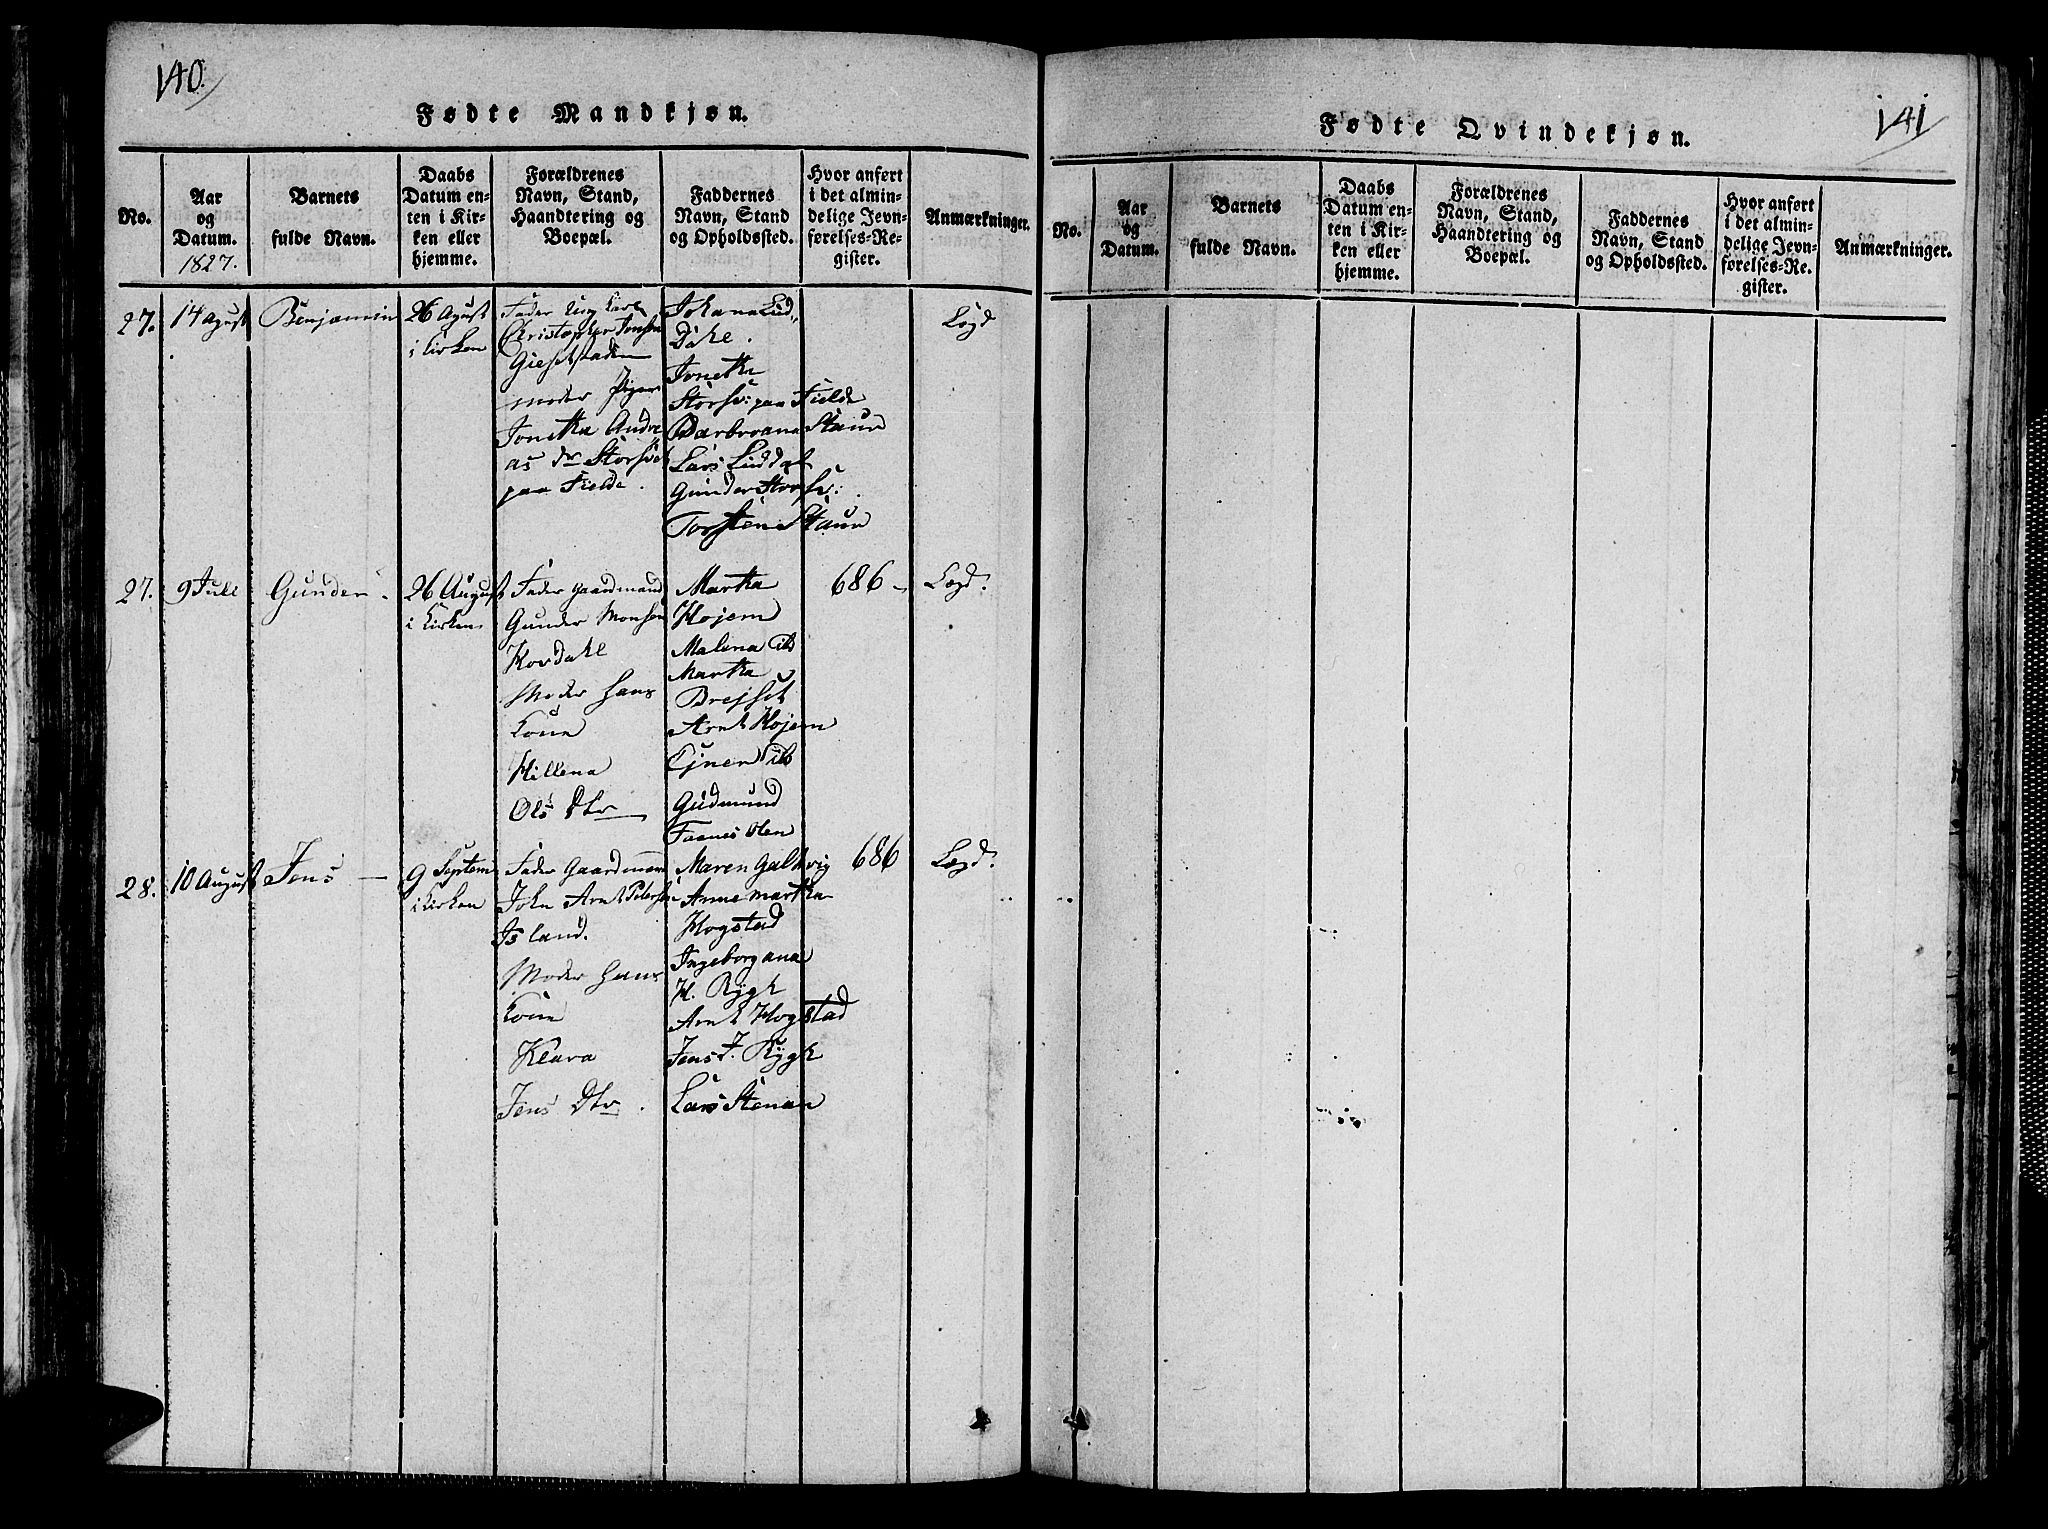 140.
Fødte Mandkjøn.
No.
Aar
og
Datum.
1827.
Barnets
fulde Navn.
Daabs
Datum en-
ten i Kir-
ken eller
hjemme.
Forældrenes
Navn, Stand,
Haandtering og
Boepæl.
Faddernes
Navn, Stand
og Opholdssted.
Hvor anført
i det almin-
delige Jevn-
førelses-Re-
gister.
Anmærkninger.
27.
14 Agust
Benjamin
26 Agust
i Kirken
Fader Ung Karl
Christopher Jensen
moder Pigen
Jonetta Andre
as dr Storset
paa Fielde.
Johana Lud
Dahl.
Jonetta
Storse: paa Fielde
Barbroana Staur
Lars Luddal
Gunder Storse:
Torsten Staur
Logd
27.
9 Jule
Gunder
26 August
i Kirken
Fader Gaardmand
Gunder Monsen
Kordahl
Moder hans
Kone
Hillena
Ols Dtr
Marta
Hojem
Malena ib
Marta
Brejset
Arnt Hojem
Ejner ib
Gudmund
Faanes Olen
686
Logd.
28.
10 August
Jens
9 Septem
i Kirken
Fader Gaardmann
John Arnt Petersen
Island.
Moder hans
Kone
Klara
Jens Dtr.
Maren Galtvig
Anne Marta
Hogstad
Ingeborgana
H. Rygh
Arnt Hogstad
Jens J. Rygh
Lars Stenan
686
Logd.
141
Fødte Qvindekjøn.
No.
Aar
og
Datum.
Barnets
fulde Navn.
Daabs
Datum en-
ten i Kir-
ken eller
hjemme.
Forældrenes
Navn, Stand,
Haandtering og
Boepæl.
Faddernes
Navn, Stand
og Opholdssted.
Hvor anført
i det almin-
delige Jevn-
førelses-Re-
gister.
Anmærkninger.